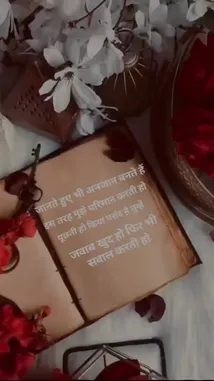 जानते हुए भी अनजान बनते हैं
इस तरह मुझे परेशान करती हो
पूछती हो किया पसंद है तुम्हें
जवाब खुद हो फिर भी
सवाल करती हो